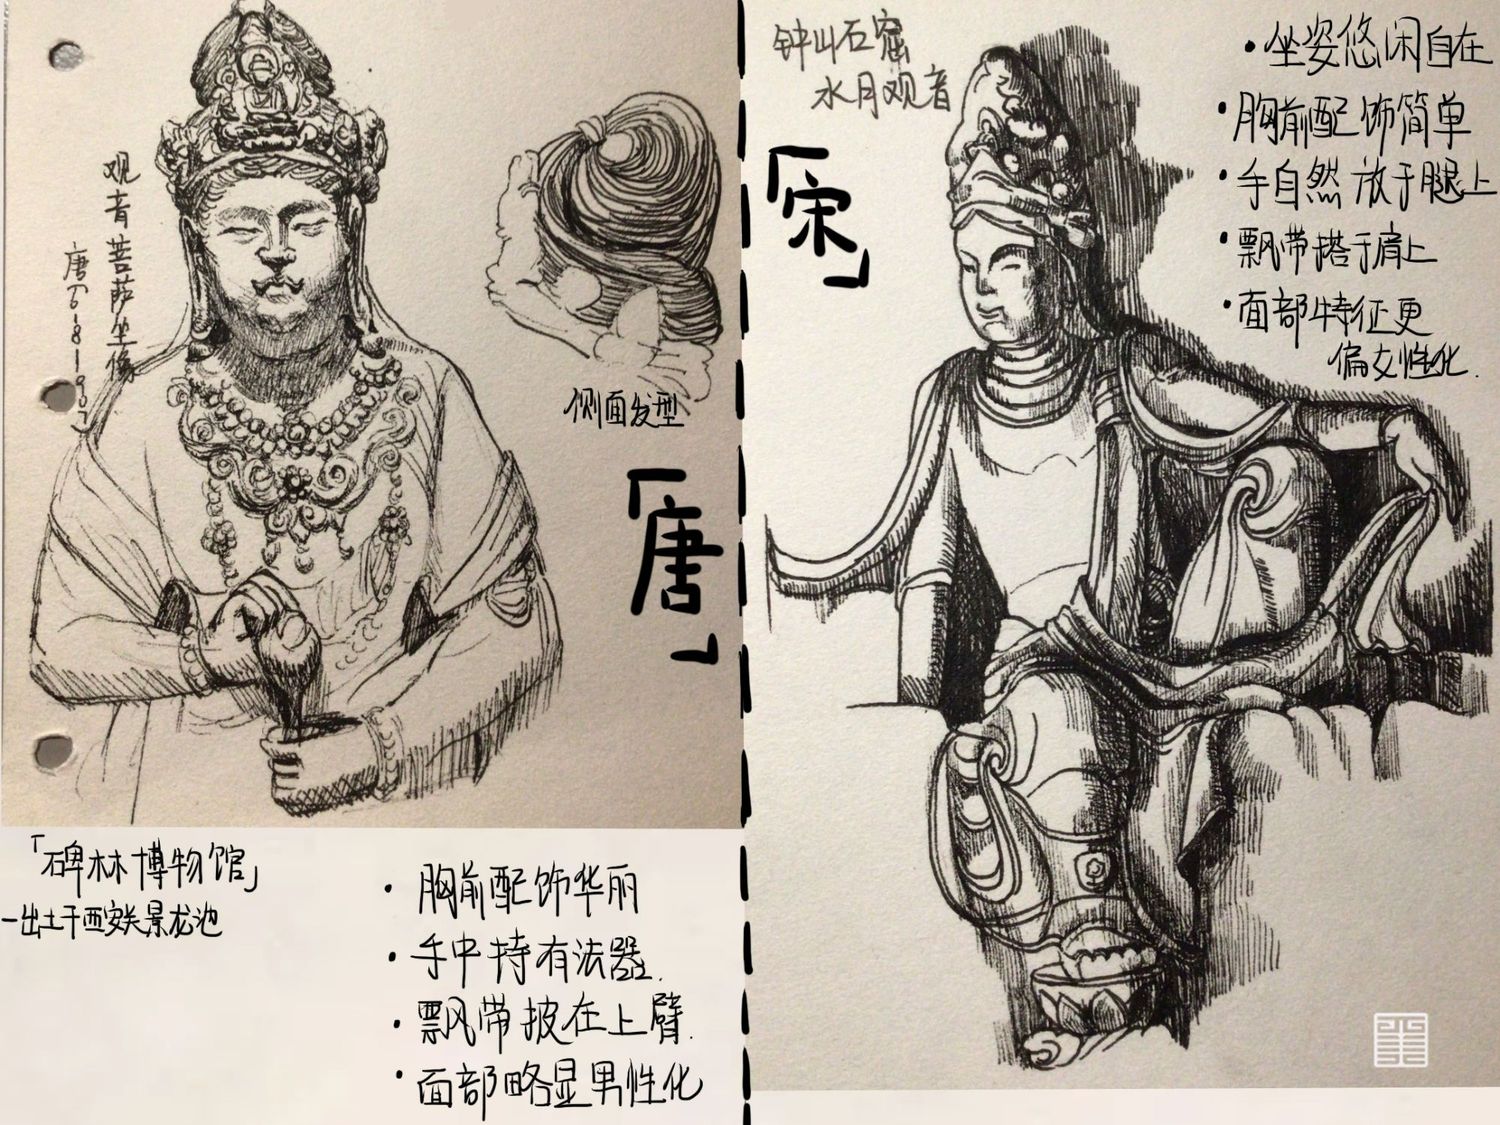 观音菩萨坐像
唐(618—907)
侧面发型
「唐」
「碑林博物馆」
—出土于西安关景龙池
• 胸前配饰华丽
• 手中持有法器.
• 飘带披在上臂.
• 面部略显男性化
钟山石窟
水月观音
「宋」
• 坐姿悠闲自在
• 胸前配饰简单
• 手自然放于腿上
• 飘带搭于肩上
• 面部特征更
偏女性化.